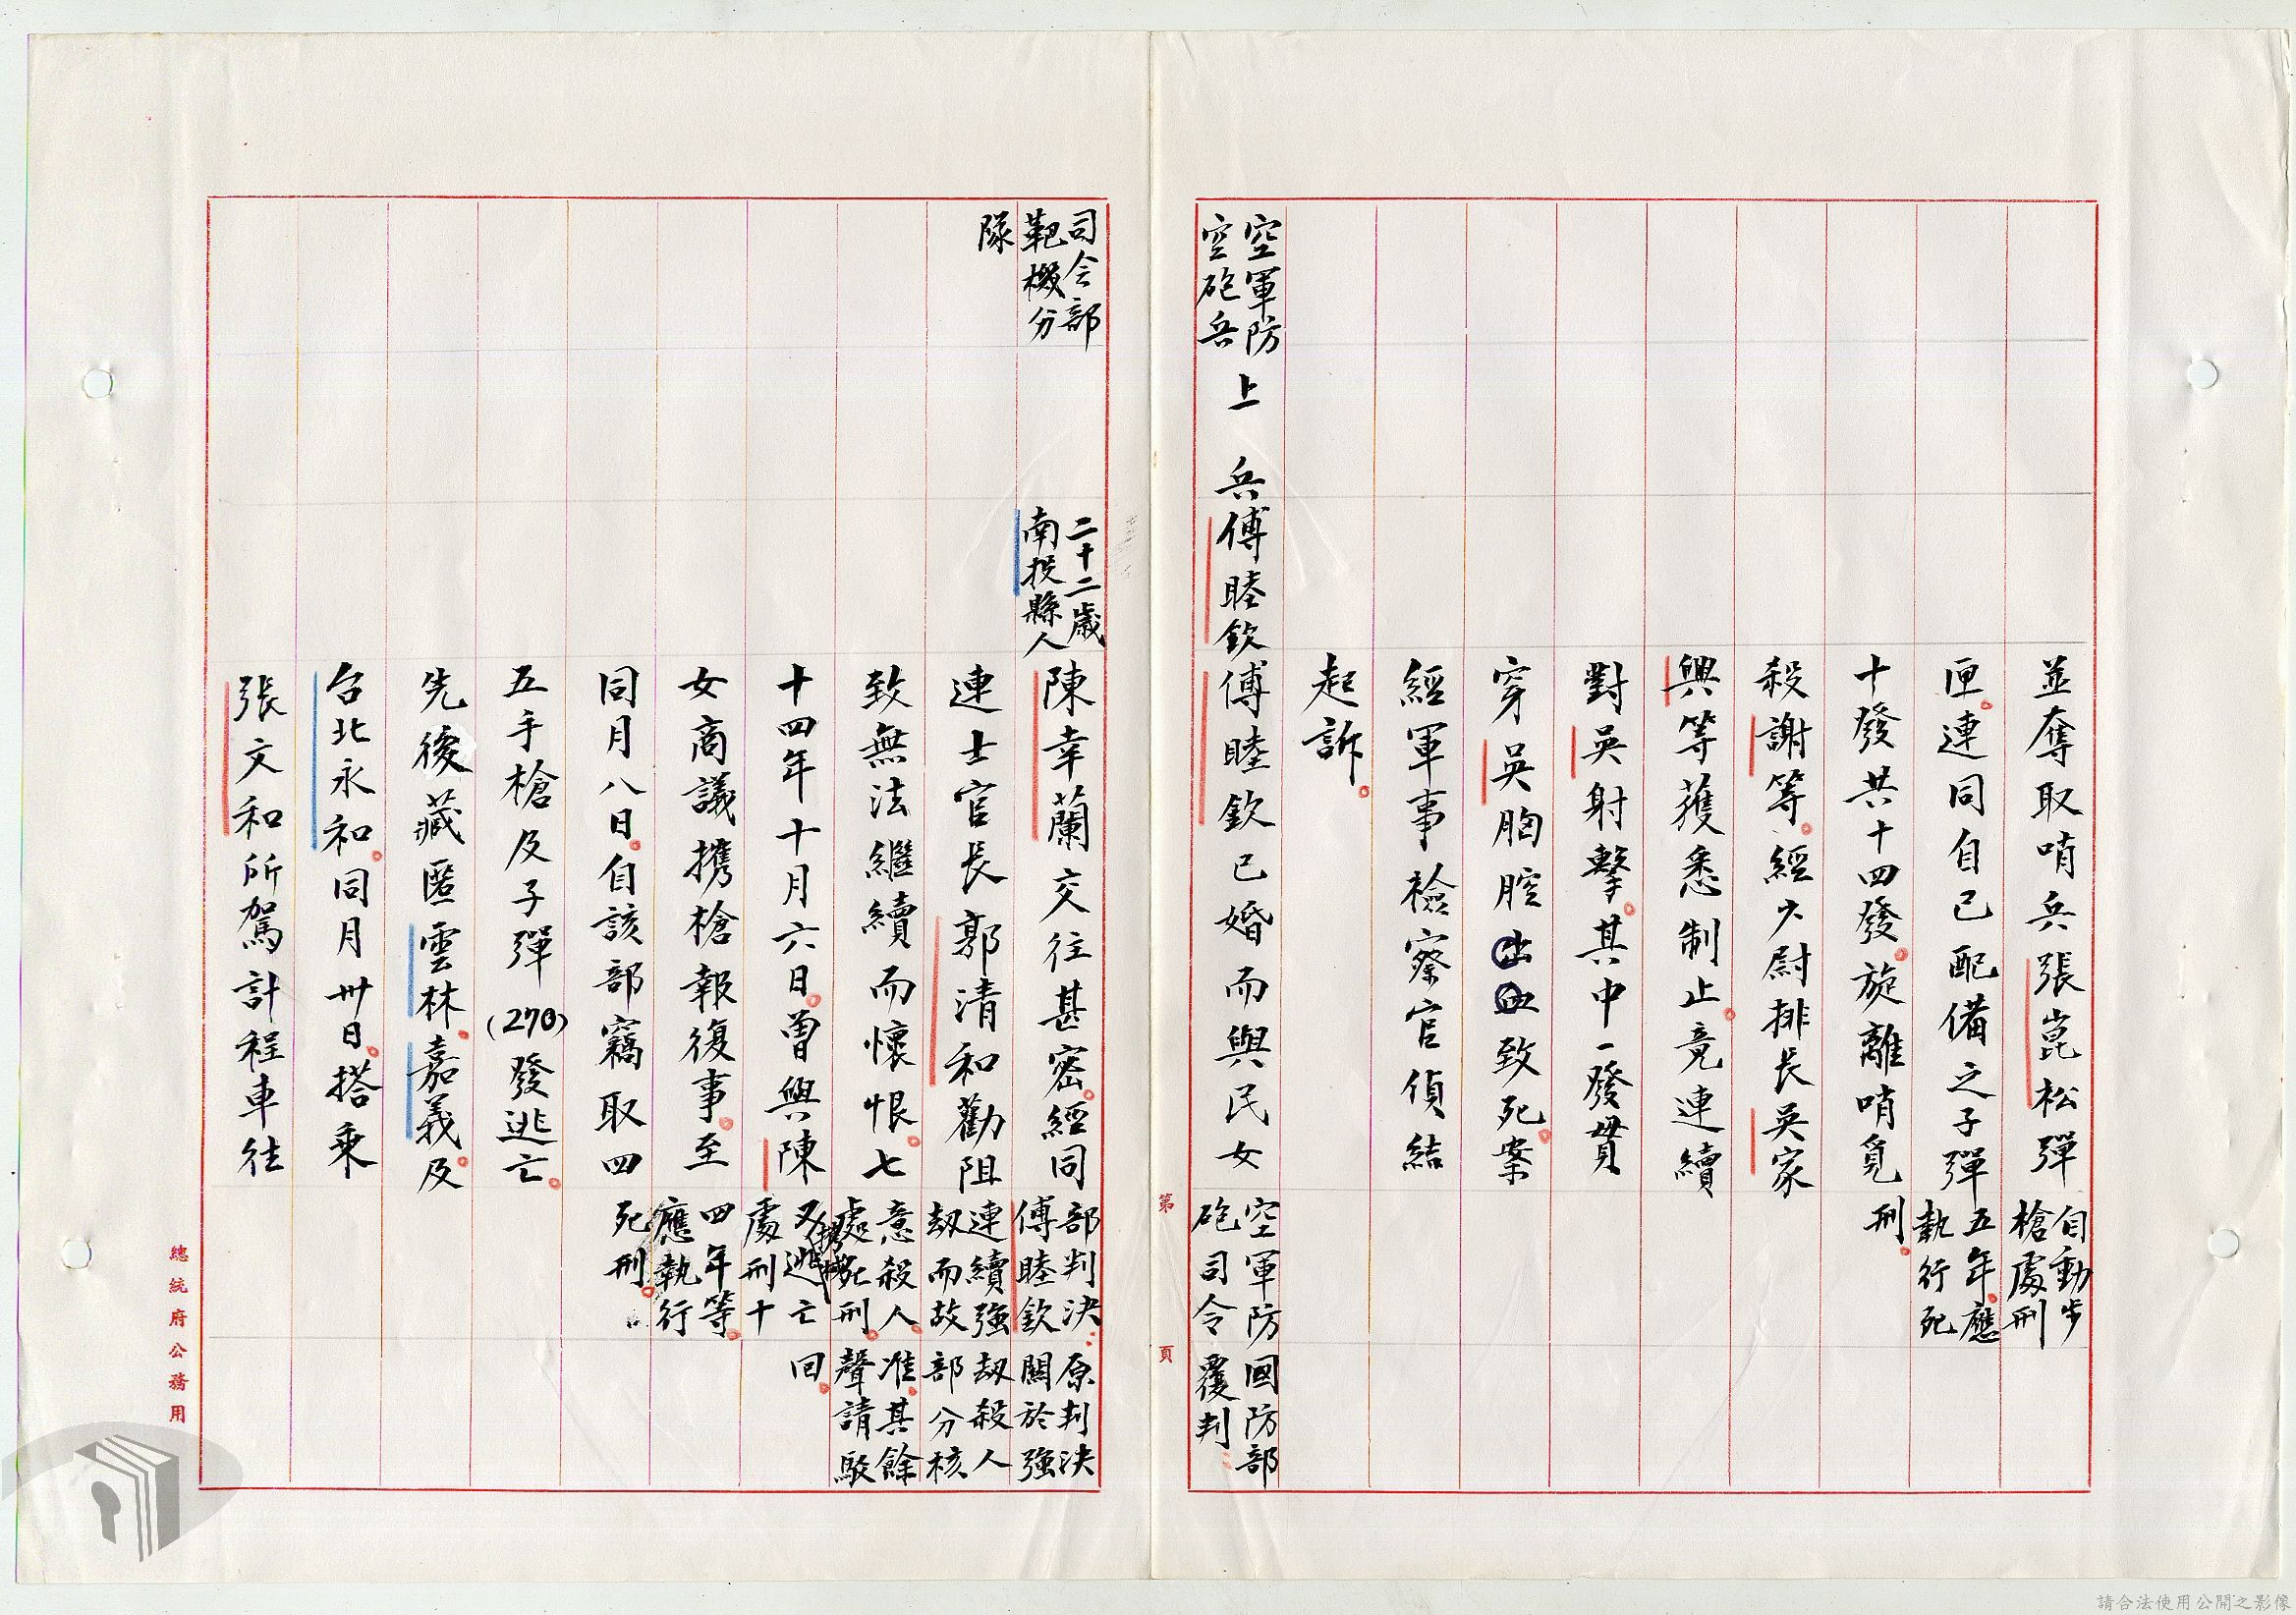 並奪取哨兵張崑松彈
匣。連同自己配備之子彈
十發共十四發。旋離哨覓
殺謝等。經少尉排長吳家
興等獲悉制止。竟連續
對吳射擊。其中一發貫
穿吳胸腔出血致死。案
經軍事檢察官偵結
起訴。
自動步
槍處刑
五年。應
執行死
刑。
空軍防
空砲兵
上兵
傅睦欽
傅睦欽已婚而與民女
空軍防
砲司令
國防部
覆判:
第 頁
司令部
靶機分
隊
二十二歲
南投縣人
陳幸蘭交往甚密。經同
連士官長郭清和勸阻
致無法繼續而懷恨。七
十四年十月六日。曾與陳
女商議攜槍報復事。至
同月八日。自該部竊取四
五手槍及子彈(270)發逃亡。
先後藏匿雲林。嘉義及
台北永和。同月卅日。搭乘
張文和所駕計程車往
部判決:
傅睦欽
連續強
劫而故
意殺人。
處死刑。
又攜械逃亡
處刑十
四年等。
應執行
死刑。
原判決
關於強
劫殺人
部分核
准。其餘
聲請駁
回。
總統府公務用
請合法使用公開之影像